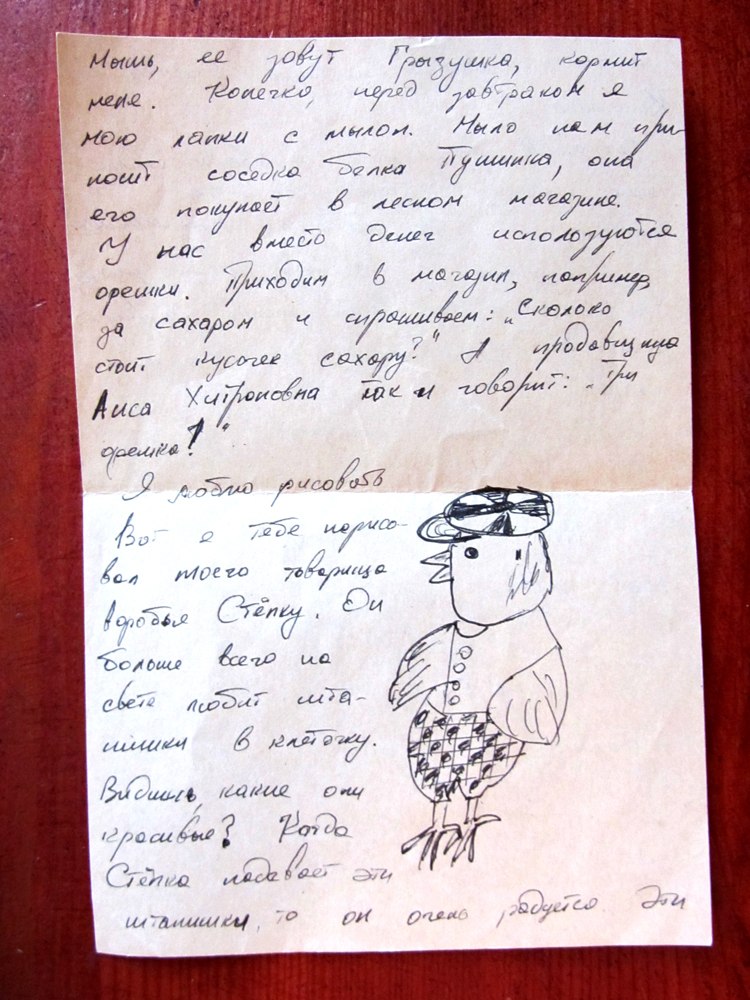 Мышь, ее зовут Грызушка, кормит
меня. Конечно, перед завтраком я
мою лапки с мылом. Мыло нам при-
носит соседка белка Пушинка, она
его покупает в лесном магазине.
У нас вместо денег используются
орешки. Приходим в магазин, например,
за сахаром и спрашиваем: „Сколько
стоит кусочек сахару?" А продавщица
Лиса Хитроновна так и говорит: „Три
орешка!"
Я люблю рисовать
Вот я тебе нарисо-
вал моего товарища
воробья Стёпку. Он
больше всего на
свете любит шта-
нишки в клеточку.
Видишь, какие они
красивые? Когда
Стёпка надевает эти
штанишки, то он очень радуется. Эти